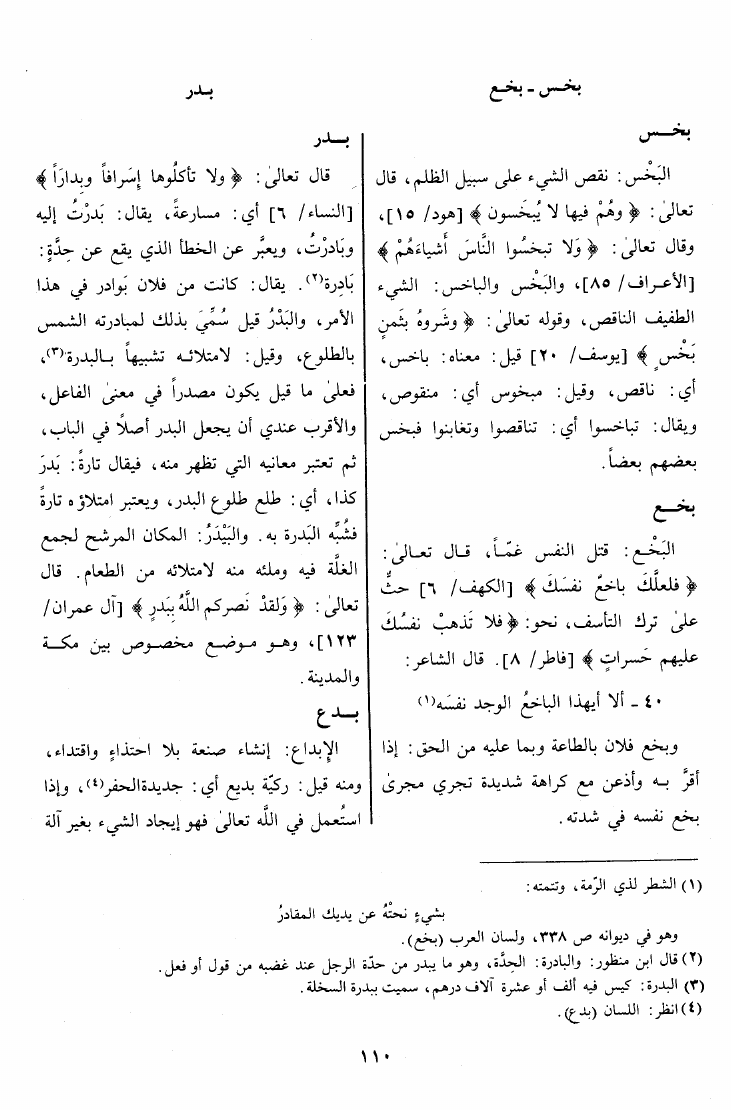 بخس - بخع
بدر
بخس
البَخْس: نقص الشيء على سبيل الظلم، قال
تعالىٰ: ﴿ وهُمْ فيها لا يُبخَسون ﴾ [هود/ ١٥]،
وقال تعالىٰ: ﴿ وَلا تبخسُوا النَّاسَ أشياءَهُمْ ﴾
[الأعراف/ ٨٥]، والبَخْس والباخس: الشيء
الطفيف الناقص، وقوله تعالىٰ: ﴿ وشَروهُ بثَمنٍ
بَخْسٍ ﴾ [يوسف/ ٢٠] قيل: معناه: باخس،
أي: ناقص، وقيل: مبخوس أي: منقوص،
ويقال: تباخسوا أي: تناقصوا وتغابنوا فبخس
بعضهم بعضاً.
بخع
البَخْع: قتل النفس غمّاً، قال تعالىٰ:
﴿ فلعلَّكَ باخعٌ نفسَكَ ﴾ [الكهف/ ٦] حثٌّ
علىٰ ترك التأسف، نحو: ﴿ فلا تَذهبْ نفسُكَ
عليهم حَسراتٍ ﴾ [فاطر/ ٨]. قال الشاعر:
٤٠ - ألا أيهذا الباخعُ الوجد نفسَه(١)
وبخع فلان بالطاعة وبما عليه من الحق: إذا
أقرَّ به وأذعن مع كراهة شديدة تجري مجرىٰ
بخع نفسه في شدته.
بدر
قال تعالىٰ: ﴿ ولا تأكلُوها إسَرافاً وبِداراً ﴾
[النساء/ ٦] أي: مسارعةً، يقال: بَدرْتُ إليه
وبَادرْتُ، ويعبَّر عن الخطأ الذي يقع عن حِدَّةٍ:
بَادِرة(٢). يقال: كانت من فلان بَوادر في هذا
الأمر، والبَدْرُ قيل سُمِّيَ بذلك لمبادرته الشمس
بالطلوع، وقيل: لامتلائه تشبيهاً بالبدرة(٣)،
فعلىٰ ما قيل يكون مصدراً في معنىٰ الفاعل،
والأقرب عندي أن يجعل البدر أصلاً في الباب،
ثم تعتبر معانيه التي تظهر منه، فيقال تارةً: بَدرَ
كذا، أي: طلع طلوع البدر، ويعتبر امتلاؤه تارةً
فشُبِّه البَدرة به. والبَيْدَرُ: المكان المرشح لجمع
الغلَّة فيه وملئه منه لامتلائه من الطعام. قال
تعالىٰ: ﴿ وَلقدْ نَصركم اللَّهُ بِبَدرٍ ﴾ [آل عمران/
١٢٣]، وهو موضع مخصوص بين مكة
والمدينة.
بدع
الإِبداع: إنشاء صنعة بلا احتذاءٍ واقتداء،
ومنه قيل: ركيّة بديع أي: جديدةالحفر(٤)، وإذا
استُعمل في اللَّه تعالىٰ فهو إيجاد الشيء بغير آلة
(١) الشطر لذي الرّمة، وتتمته:
بشيءٍ نحتْهُ عن يديك المقادرُ
وهو في ديوانه ص ٣٣٨، ولسان العرب (بخع).
(٢) قال ابن منظور: والبادرة: الحِدَّة، وهو ما يبدر من حدّة الرجل عند غضبه من قول أو فعل.
(٣) البدرة: كيس فيه ألف أو عشرة آلاف درهم، سميت ببدرة السخلة.
(٤) انظر: اللسان (بدع).
١١٠